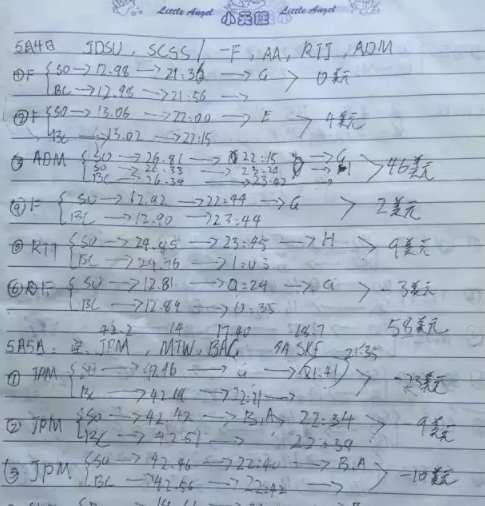 Little Angel 小天使 Little Angel
5月4日 JDSU, SCSS / -F, AA, RTI, ADM
①F { SO → 12.98 → 21:36 → G > 0美元
BC → 12.98 → 21:56 →
②F { SO → 13.06 → 22:00 → E > 4美元
BC → 13.02 → 22:15
③ ADM { SO → 26.81 → 22:15 → G > 46美元
SO → 26.33
BC → 26.34 → 23:42
④F { SO → 12.92 → 22:44 → G > 2美元
BC → 12.90 → 23:44
⑤ RTI { SO → 24.85 → 23:45 → H > 9美元
BC → 24.76 → 1:03
⑥ F { SO → 12.81 → 0:24 → G > -3美元
BC → 12.84 → 0:35
14 58美元
5月5日: JPM, MTW, BAC, BA SKF 21:35
① JPM { SO → → 21:41 > -23美元
BC →
② JPM { SO → 42.42 → B,A 22:34 > -9美元
BC → 42.51 → 22:39
③ JPM { SO → 42.46 → 22:40 → B,A > -10美元
BC → 42.56 → 22:42 →